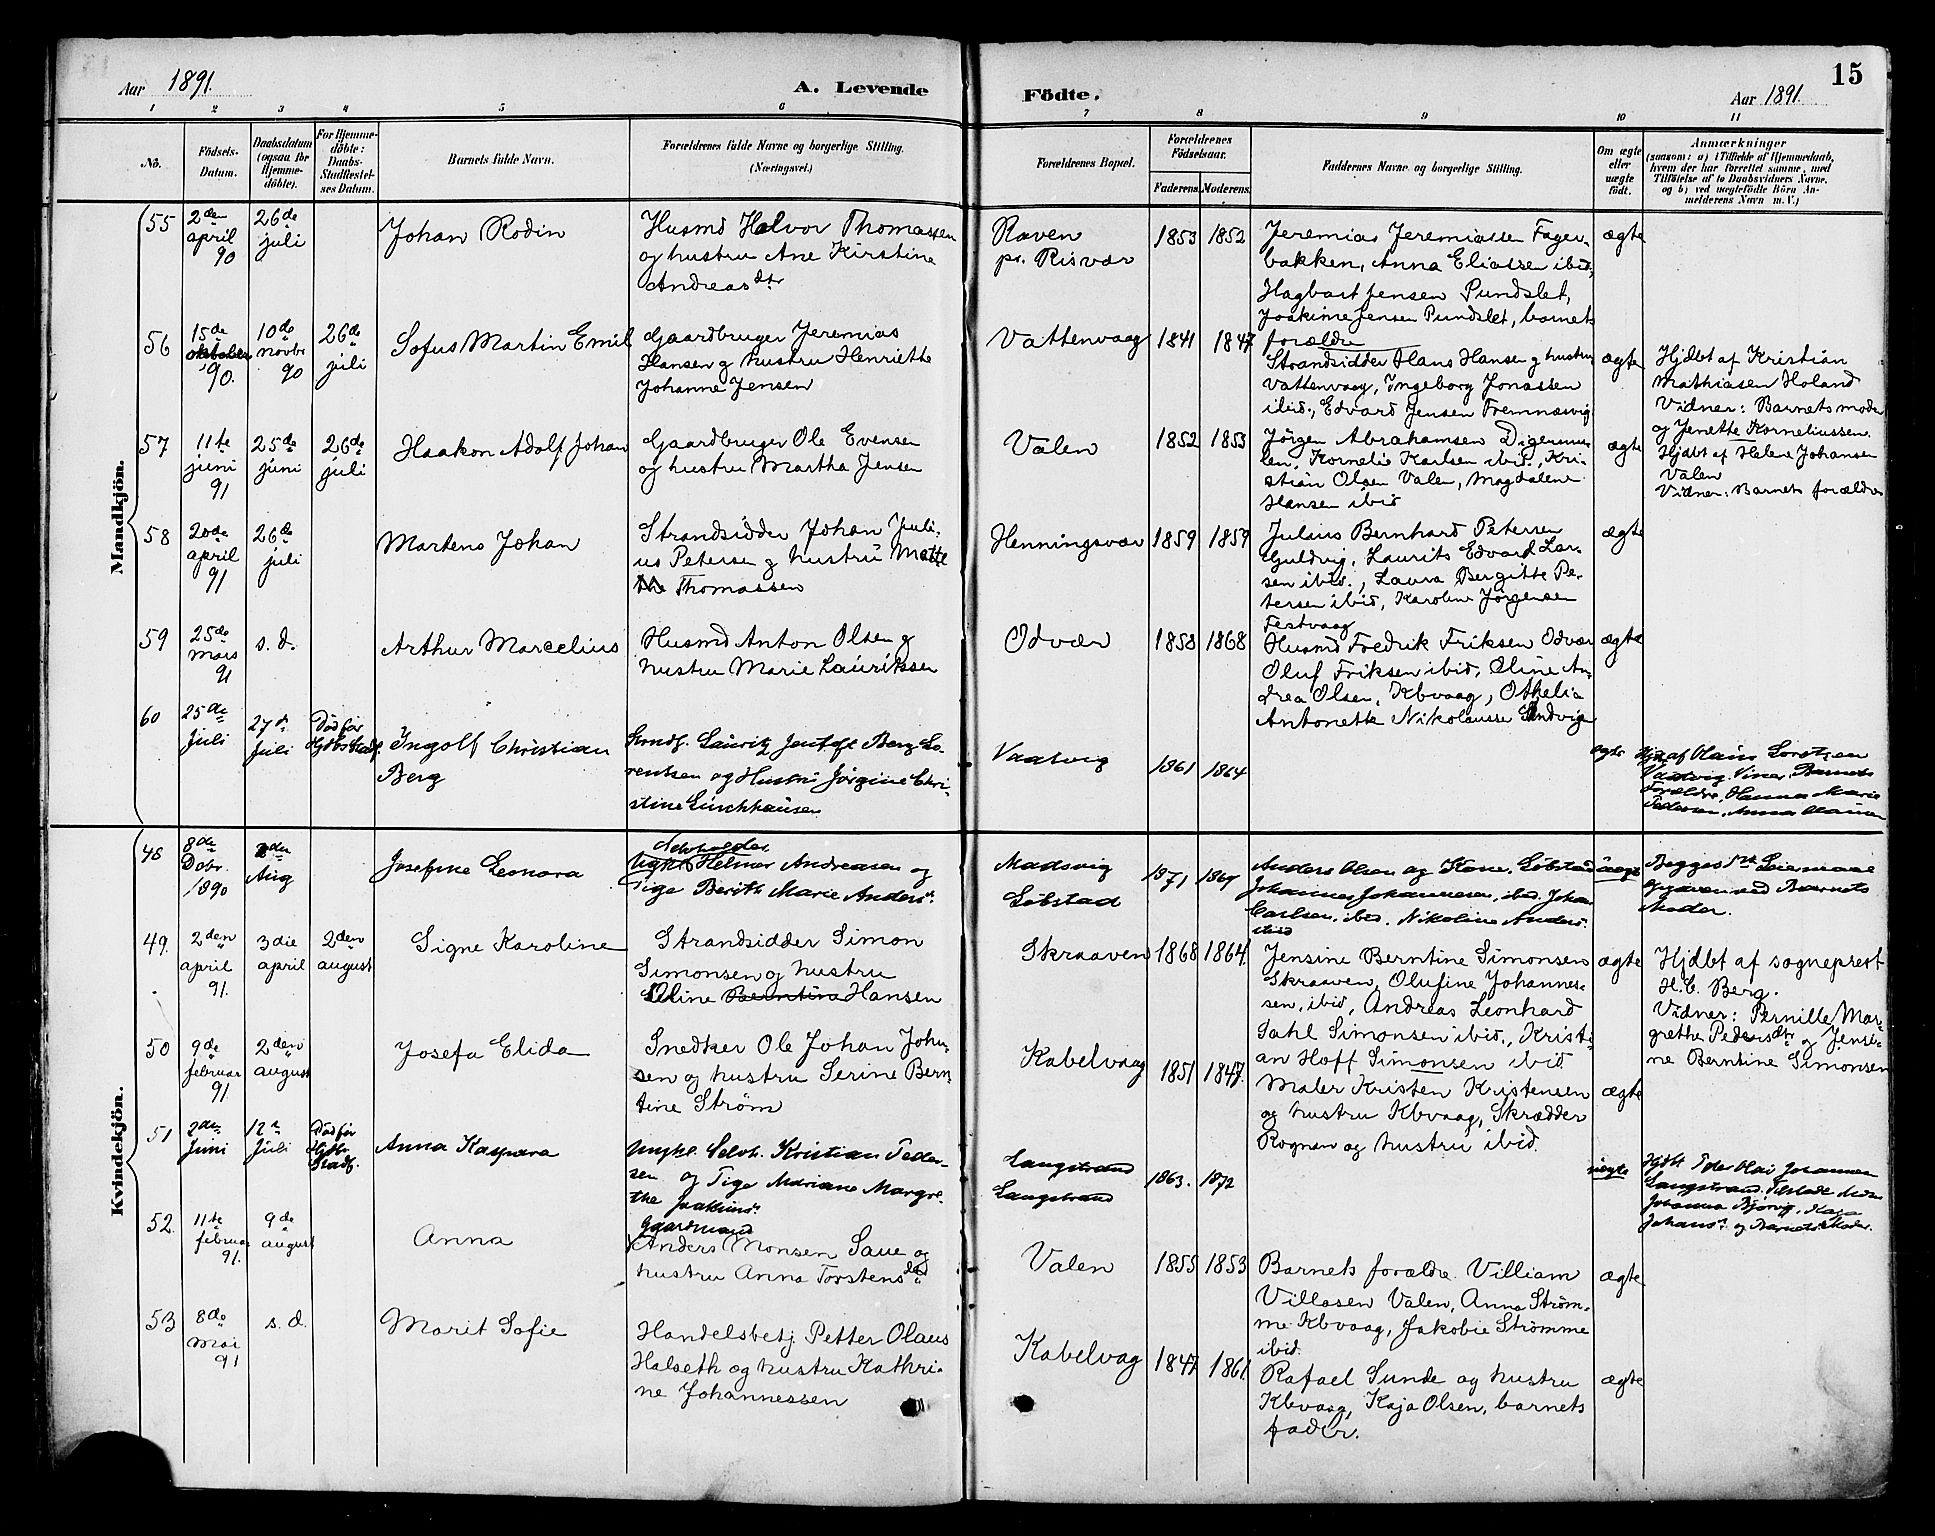 15
Aar 1891.
A. Levende Födte.
Aar 1891.
1 2 3 4 5 6 7 8 9 10 11
No.
Födsels-Datum.
Daabsdatum (ogsaa for Hjemmedöbte).
For Hjemmedöbte: Daabs-Stadfæstelses Datum.
Barnets fulde Navn.
Forældrenes fulde Navne og borgerlige Stilling. (Næringsvei.)
Forældrenes Bopæl.
Forældrenes Födselsaar.
Faderens. Moderens.
Faddernes Navne og borgerlige Stilling.
Om ægte eller uægte födt.
Anmærkninger (saasom: a) i Tilfælde af Hjemmedaab, hvem der har forrettet samme, med Tilföielse af to Daabsvidners Navne, og b) ved uægtefödte Börn Anmelderens Navn m. V.)
Mandkjön.
55
2den april 90
26de juli
Johan Rodin
Husmd Halvor Thomassen
og hustru Ane Kirstine
Andreasdtr
Raven
pr. Risvær
1853 1852
Jeremias Jeremiassen Fager-
bakken, Anna Eliassen ibid,
Hagbart Jensen Pundslet,
Joakime Jensen Pundslet, barnets
forældre
ægte
56
15de oktober 90.
10de novbr 90
26de juli
Sofus Martin Emil
Gaardbruger Jeremias
Hansen og hustru Henriette
Johanne Jensen
Vattenvaag
1841 1847
Strandsidder Hans Hansen og hustru
Vattenvaag, Ingeborg Jonassen
ibid., Edvard Jensen Fremnæsvig
ægte
Hjdbt af Kristian
Mathiasen Holand
Vidner: Barnets moder
og Jenette Korneliussen.
57
11te juni 91
25de juni
26de juli
Haakon Adolf Johan
Gaardbruger Ole Evensen
og hustru Martha Jensen
Valen
1852 1853
Jörgen Abrahamsen Digermu-
len, Kornelie Karlsen ibid., Kri-
stian Olsen Valen, Magdalene
Hansen ibid
ægte
Hjdbt af Helene Johansen
Valen
Vidner: Barnets forældre
58
20de april 91
26de juli
Martens Johan
Strandsidder Johan Juli-
us Petersen og hustru Mette
Thomassen
Henningsvær
1859 1859
Julius Bernhard Petersen
Guldvig, Laurits Edvard Lar-
sen ibid., Laura Bergitte Pe-
tersen ibid, Karoline Jørgensen
Festvaag
ægte
59
25de mars 91
s. d.
Arthur Marcelius
Husmd Anton Olsen og
hustru Marie Lauritssen
Odvær
1858 1868
Husmd Fredrik Eriksen Odvær
Oluf Eriksen ibid, Oline An-
drea Olsen, Kbvaag, Othelia
Antonette Nikolaisen Sandvig
ægte
60
25de Juli
27de Juli
Död før Hjdbs Stadf.
Ingolf Christian
Berg
Lauritz Jentoft Berg Lo-
rentsen og Hustru Jørgine Chri-
stine Linchhausen
Vaatvig
1861 1864
ægte
Hjd af Hans Lorntzen
Vaatvig. Viner, Barnets
Forældre, Hanna Marie
Pedersen, Anna Clausen
Kvindekjön.
48
8de Debr. 1890
2den Aug
Josefine Leonora
Ungkl Helmer Andreasen og
Pige Berith Marie Anders.
Madsvig
Løbstad
1871 1867
Anders Olsen og Kone, Løbstad
Johannes Johannesen, ibd. Johan
Carlsen, ibid. Nikoline Anders.
ibid
uægte
Begges 1ste Leiermaal
opgaven ved Barnets
Moder.
49.
2den april 91.
3die april
2den august
Signe Karoline
Strandsidder Simon
Simonsen og hustru
Oline Berntine Hansen
Skraaven
1868 1864.
Jensine Berntine Simonsen
Skraaven, Olufine Johannes-
sen, ibid, Andreas Leonhard
Dahl Simonsen ibid., Kristi-
an Hoff Simonsen ibid
ægte
Hjdbt af sogneprest
H. C. Berg.
Vidner: Pernille Mar-
grethe Pedersdtr og Jensi-
ne Berntine Simonsen
50
9de februar 91
2den august
Josefa Elida
Snedker Ole Johan John-
sen og hustru Serine Bern-
tine Strøm
Kabelvaag
1851 1847.
Maler Kristen Kristensen
og hustru Kbvaag, Skrædder
Rognan og hustru ibid.
ægte
51
2den Juni
12te Juli
Död før Hjdbs Stadf.
Anna Kaspara
Ungkl. Selvh. Kristian Peder-
sen og Pige Mariane Margre-
the Joakims.
Langstrand
Langstrand
1863. 1872
uægte
Hjdbt Peder Olai Johannesen
Langstrand.
52.
11te februar 91.
9de august
Anna
Gaardmand
Anders Monsen Saue og
hustru Anna Torstensdtr
Valen
1855 1853
Barnets forældre Villiam
Villasen Valen, Anna Strøm-
me Kbvaag, Jakobie Strømme
ibid.
ægte
53
8de mai 91
s. d.
Marit Sofie
Handelsbetj. Petter Olaus
Halseth og hustru Kathri-
ne Johannessen
Kabelvag
1847 1861
Rafael Sunde og hustru
Kbvaag, Kaja Olsen, barnets
fader.
ægte